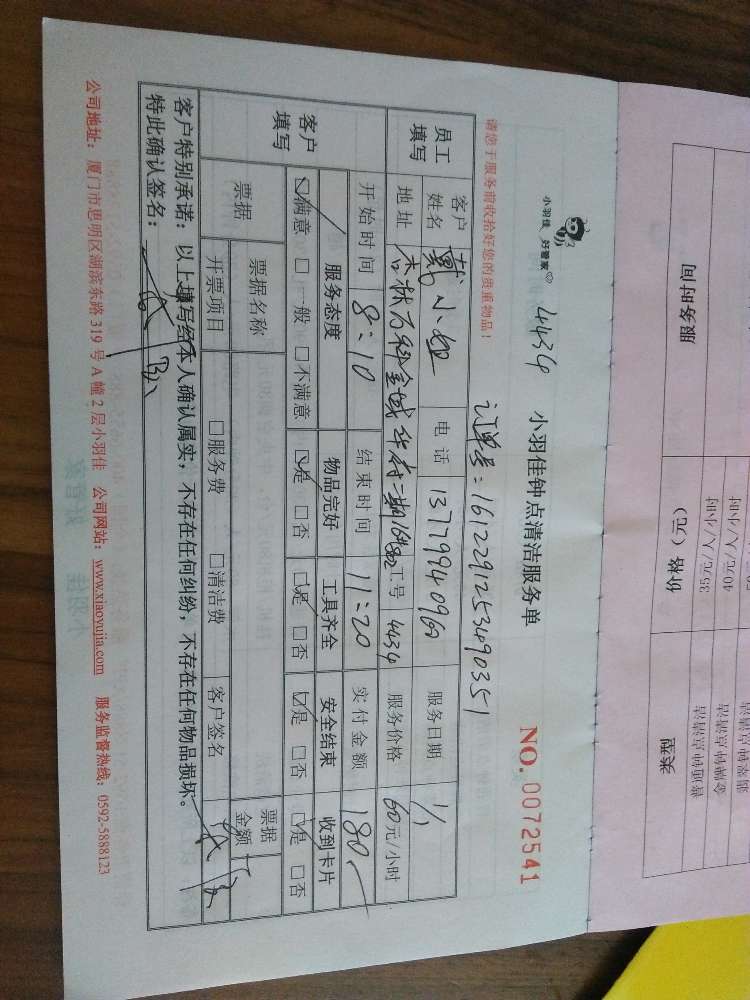 小羽佳 好管家
4434
小羽佳钟点清洁服务单
NO. 0072541
订单号：1612291253490351
请您于服务前收拾好您的贵重物品！
员工填写
客户姓名 戴小姐 电话 服务日期 1/1
地址 杏林万科金域华府二期 工号 4434 服务价格 60元/小时
客户填写
开始时间 8:10 结束时间 11:20 实付金额 180
服务态度 物品完好 工具齐全 安全结束 收到卡片
☑满意 □一般 □不满意 ☑是 □否 ☑是 □否 ☑是 □否 ☑是 □否
票据 票据名称 票据金额
开票项目 □服务费 □清洁费 客户签名
客户特别承诺：以上填写经本人确认属实，不存在任何纠纷，不存在任何物品损坏。
特此确认签名：
公司地址：厦门市思明区湖滨东路 319 号 A 幢 2 层小羽佳 公司网站：www.xiaoyujia.com 服务监督热线：0592-5888123
服务时间 价格（元） 类型
35元/人/小时 普通钟点清洁
40元/人/小时